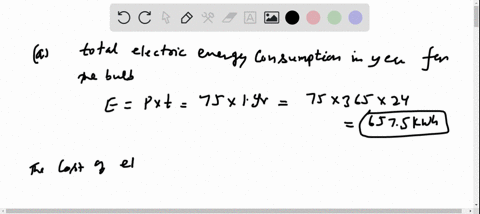 (a) total electric energy consumption in year for
the bulb
E = P×t = 75×1.yr = 75×365×24
= 657.5 kWh
The cost of el